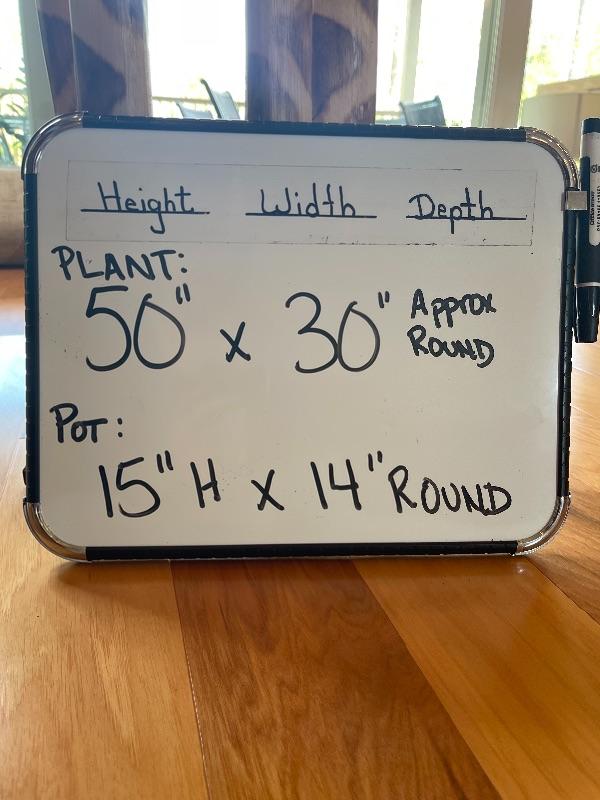 Height Width Depth
PLANT:
50" x 30" Approx
ROUND
POT:
15" H x 14" ROUND